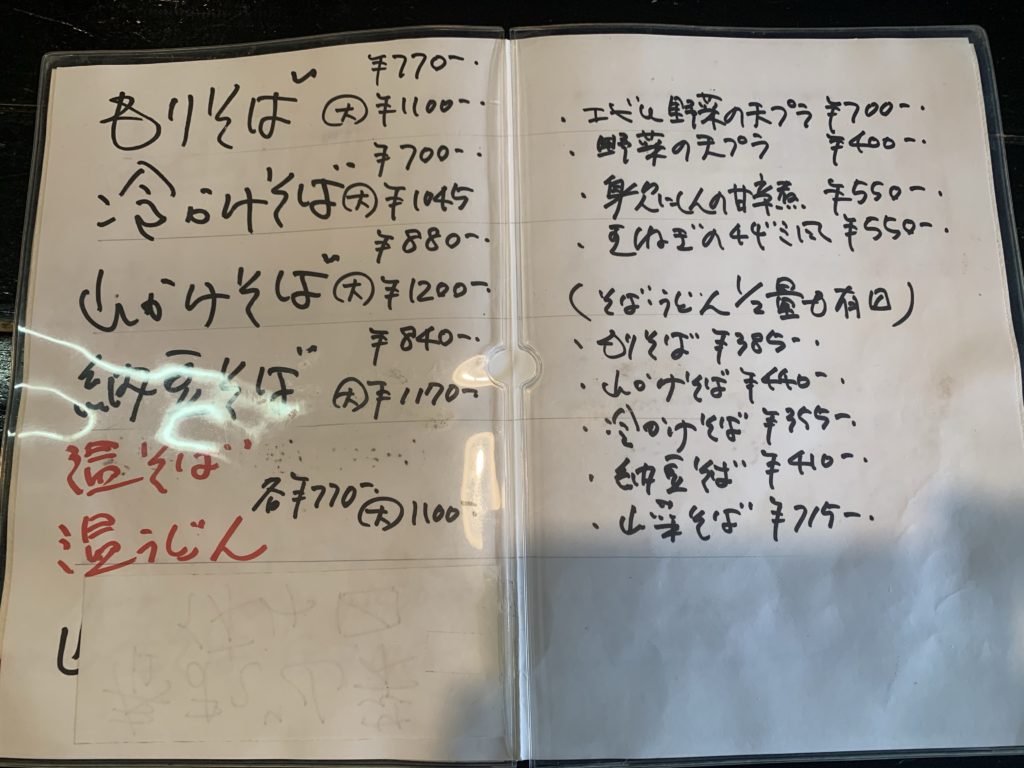 ¥770-.
もりそば (大)¥1100-.
¥700-.
冷かけそば (大)¥1045
¥880-.
山かけそば (大)¥1200-.
¥840-.
納豆そば (大)¥1170-.
温そば
各¥770-. (大)1100-
温うどん
・エビと野菜の天プラ ¥700-.
・野菜の天プラ ¥400-.
・身欠にしんの甘辛煮 ¥550-.
・玉ねぎの ¥550-.
(そば・うどん1/2量も有り)
・もりそば ¥385-.
・山かけそば ¥440-.
・冷かけそば ¥355-.
・納豆そば ¥410-.
・山菜そば ¥715-.